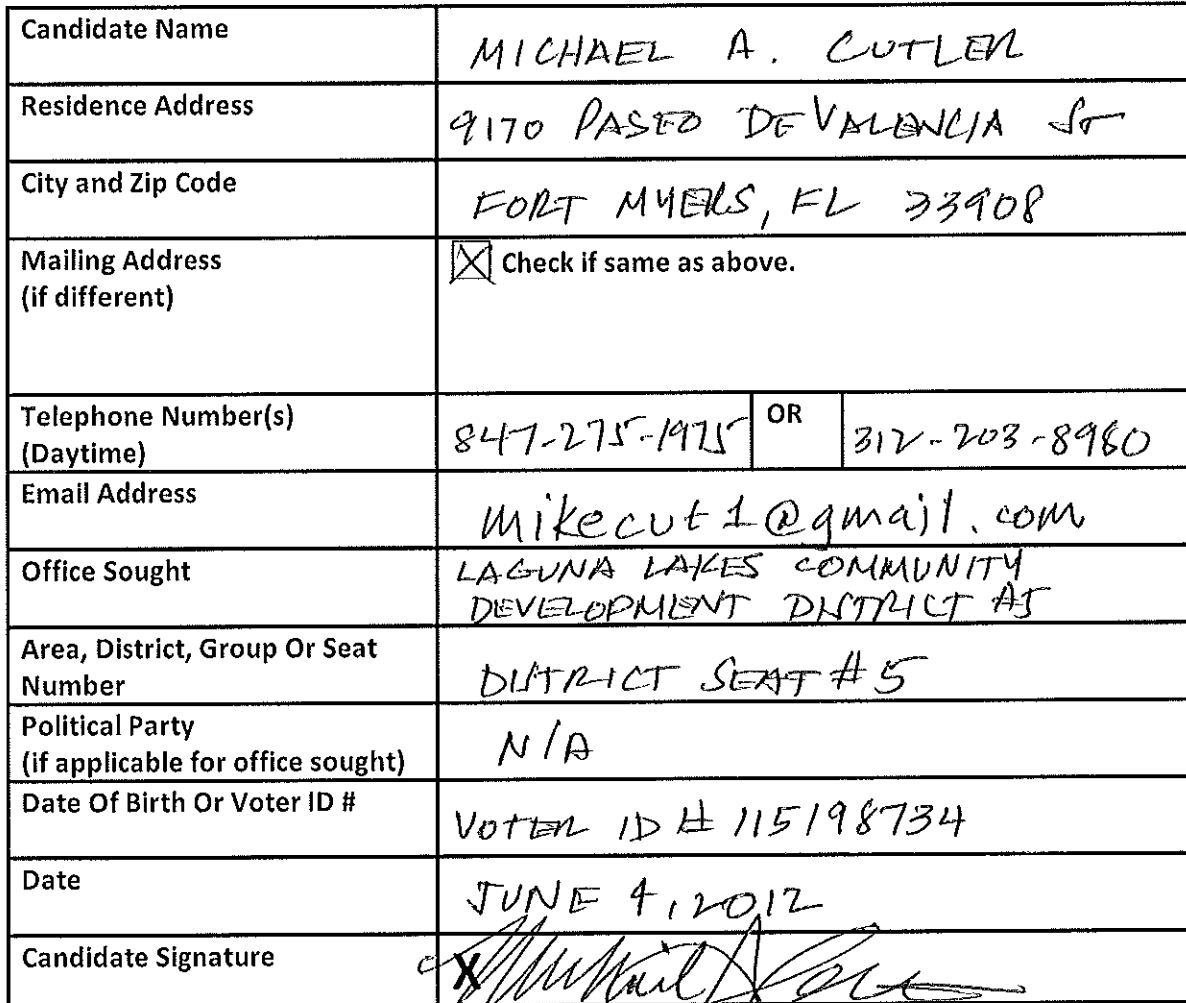 Candidate Name
MICHAEL A. CUTLER
Residence Address
9170 PASEO DE VALENCIA ST
City and Zip Code
FORT MYERS, FL 33908
Mailing Address
(if different)
☒ Check if same as above.
Telephone Number(s)
(Daytime)
847-275-1975 OR 312-203-8960
Email Address
mikecut1@gmail.com
Office Sought
LAGUNA LAKES COMMUNITY
DEVELOPMENT DISTRICT
Area, District, Group Or Seat
Number
DISTRICT SEAT #5
Political Party
(if applicable for office sought)
N/A
Date Of Birth Or Voter ID #
VOTER ID # 115198734
Date
JUNE 4, 2012
Candidate Signature
X